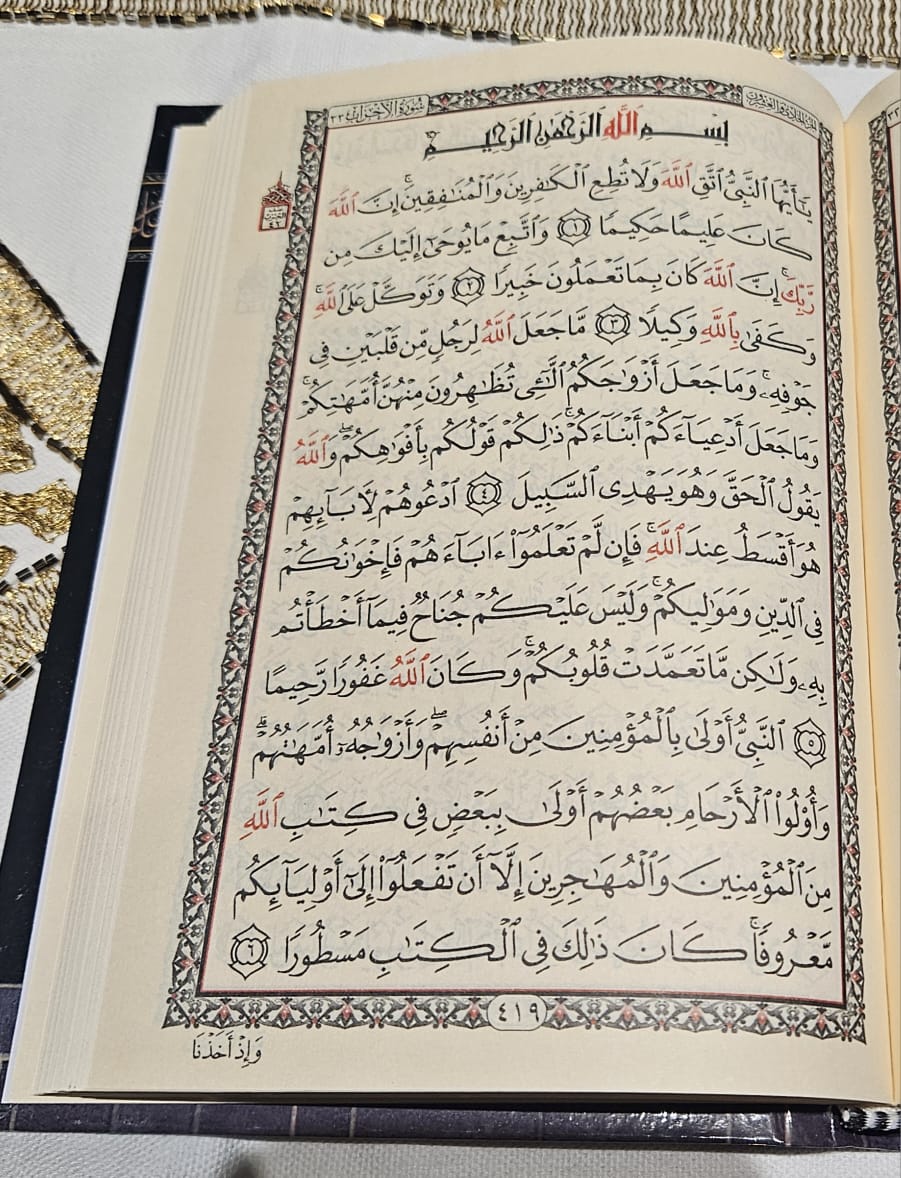 سُورَةُ الأَحْزَابِ ٣٣
الجزء الحادي والعشرون
بِسْمِ ٱللَّهِ ٱلرَّحْمَٰنِ ٱلرَّحِيمِ
يَٰٓأَيُّهَا ٱلنَّبِيُّ ٱتَّقِ ٱللَّهَ وَلَا تُطِعِ ٱلْكَٰفِرِينَ وَٱلْمُنَٰفِقِينَۚ إِنَّ ٱللَّهَ
كَانَ عَلِيمًا حَكِيمًا ١ وَٱتَّبِعْ مَا يُوحَىٰٓ إِلَيْكَ مِن
رَّبِّكَۚ إِنَّ ٱللَّهَ كَانَ بِمَا تَعْمَلُونَ خَبِيرًا ٢ وَتَوَكَّلْ عَلَى ٱللَّهِۚ
وَكَفَىٰ بِٱللَّهِ وَكِيلًا ٣ مَّا جَعَلَ ٱللَّهُ لِرَجُلٍ مِّن قَلْبَيْنِ فِى
جَوْفِهِۦۚ وَمَا جَعَلَ أَزْوَٰجَكُمُ ٱلَّٰٓـِٔى تُظَٰهِرُونَ مِنْهُنَّ أُمَّهَٰتِكُمْۚ
وَمَا جَعَلَ أَدْعِيَآءَكُمْ أَبْنَآءَكُمْۚ ذَٰلِكُمْ قَوْلُكُم بِأَفْوَٰهِكُمْۖ وَٱللَّهُ
يَقُولُ ٱلْحَقَّ وَهُوَ يَهْدِى ٱلسَّبِيلَ ٤ ٱدْعُوهُمْ لِأٓبَآئِهِمْ
هُوَ أَقْسَطُ عِندَ ٱللَّهِۚ فَإِن لَّمْ تَعْلَمُوٓا۟ ءَابَآءَهُمْ فَإِخْوَٰنُكُمْ
فِى ٱلدِّينِ وَمَوَٰلِيكُمْۚ وَلَيْسَ عَلَيْكُمْ جُنَاحٌ فِيمَآ أَخْطَأْتُم
بِهِۦ وَلَٰكِن مَّا تَعَمَّدَتْ قُلُوبُكُمْۚ وَكَانَ ٱللَّهُ غَفُورًا رَّحِيمًا
٥ ٱلنَّبِيُّ أَوْلَىٰ بِٱلْمُؤْمِنِينَ مِنْ أَنفُسِهِمْۖ وَأَزْوَٰجُهُۥٓ أُمَّهَٰتُهُمْۗ
وَأُو۟لُوا۟ ٱلْأَرْحَامِ بَعْضُهُمْ أَوْلَىٰ بِبَعْضٍ فِى كِتَٰبِ ٱللَّهِ
مِنَ ٱلْمُؤْمِنِينَ وَٱلْمُهَٰجِرِينَ إِلَّآ أَن تَفْعَلُوٓا۟ إِلَىٰٓ أَوْلِيَآئِكُم
مَّعْرُوفًاۚ كَانَ ذَٰلِكَ فِى ٱلْكِتَٰبِ مَسْطُورًا ٦
٤١٩
وَإِذْ أَخَذْنَا